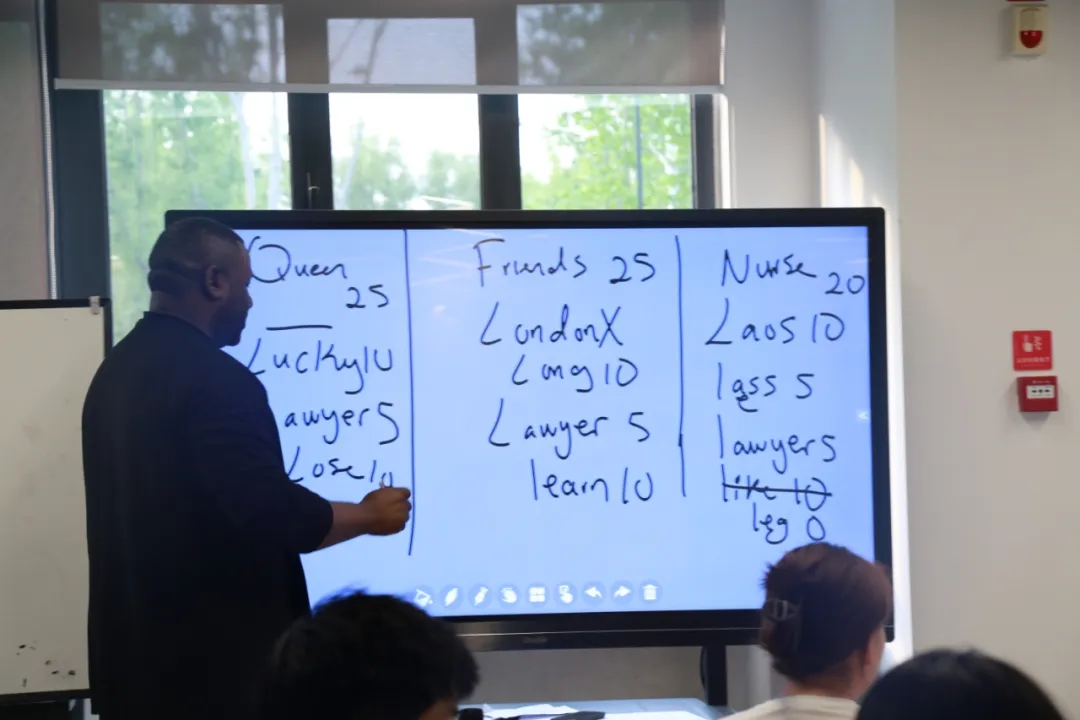 Queen
25
Lucky 10
Lawyer 5
Lose 10
Friends 25
London X
Long 10
Lawyer 5
learn 10
Nurse 20
Laos 10
less 5
lawyer 5
like 10
leg 0